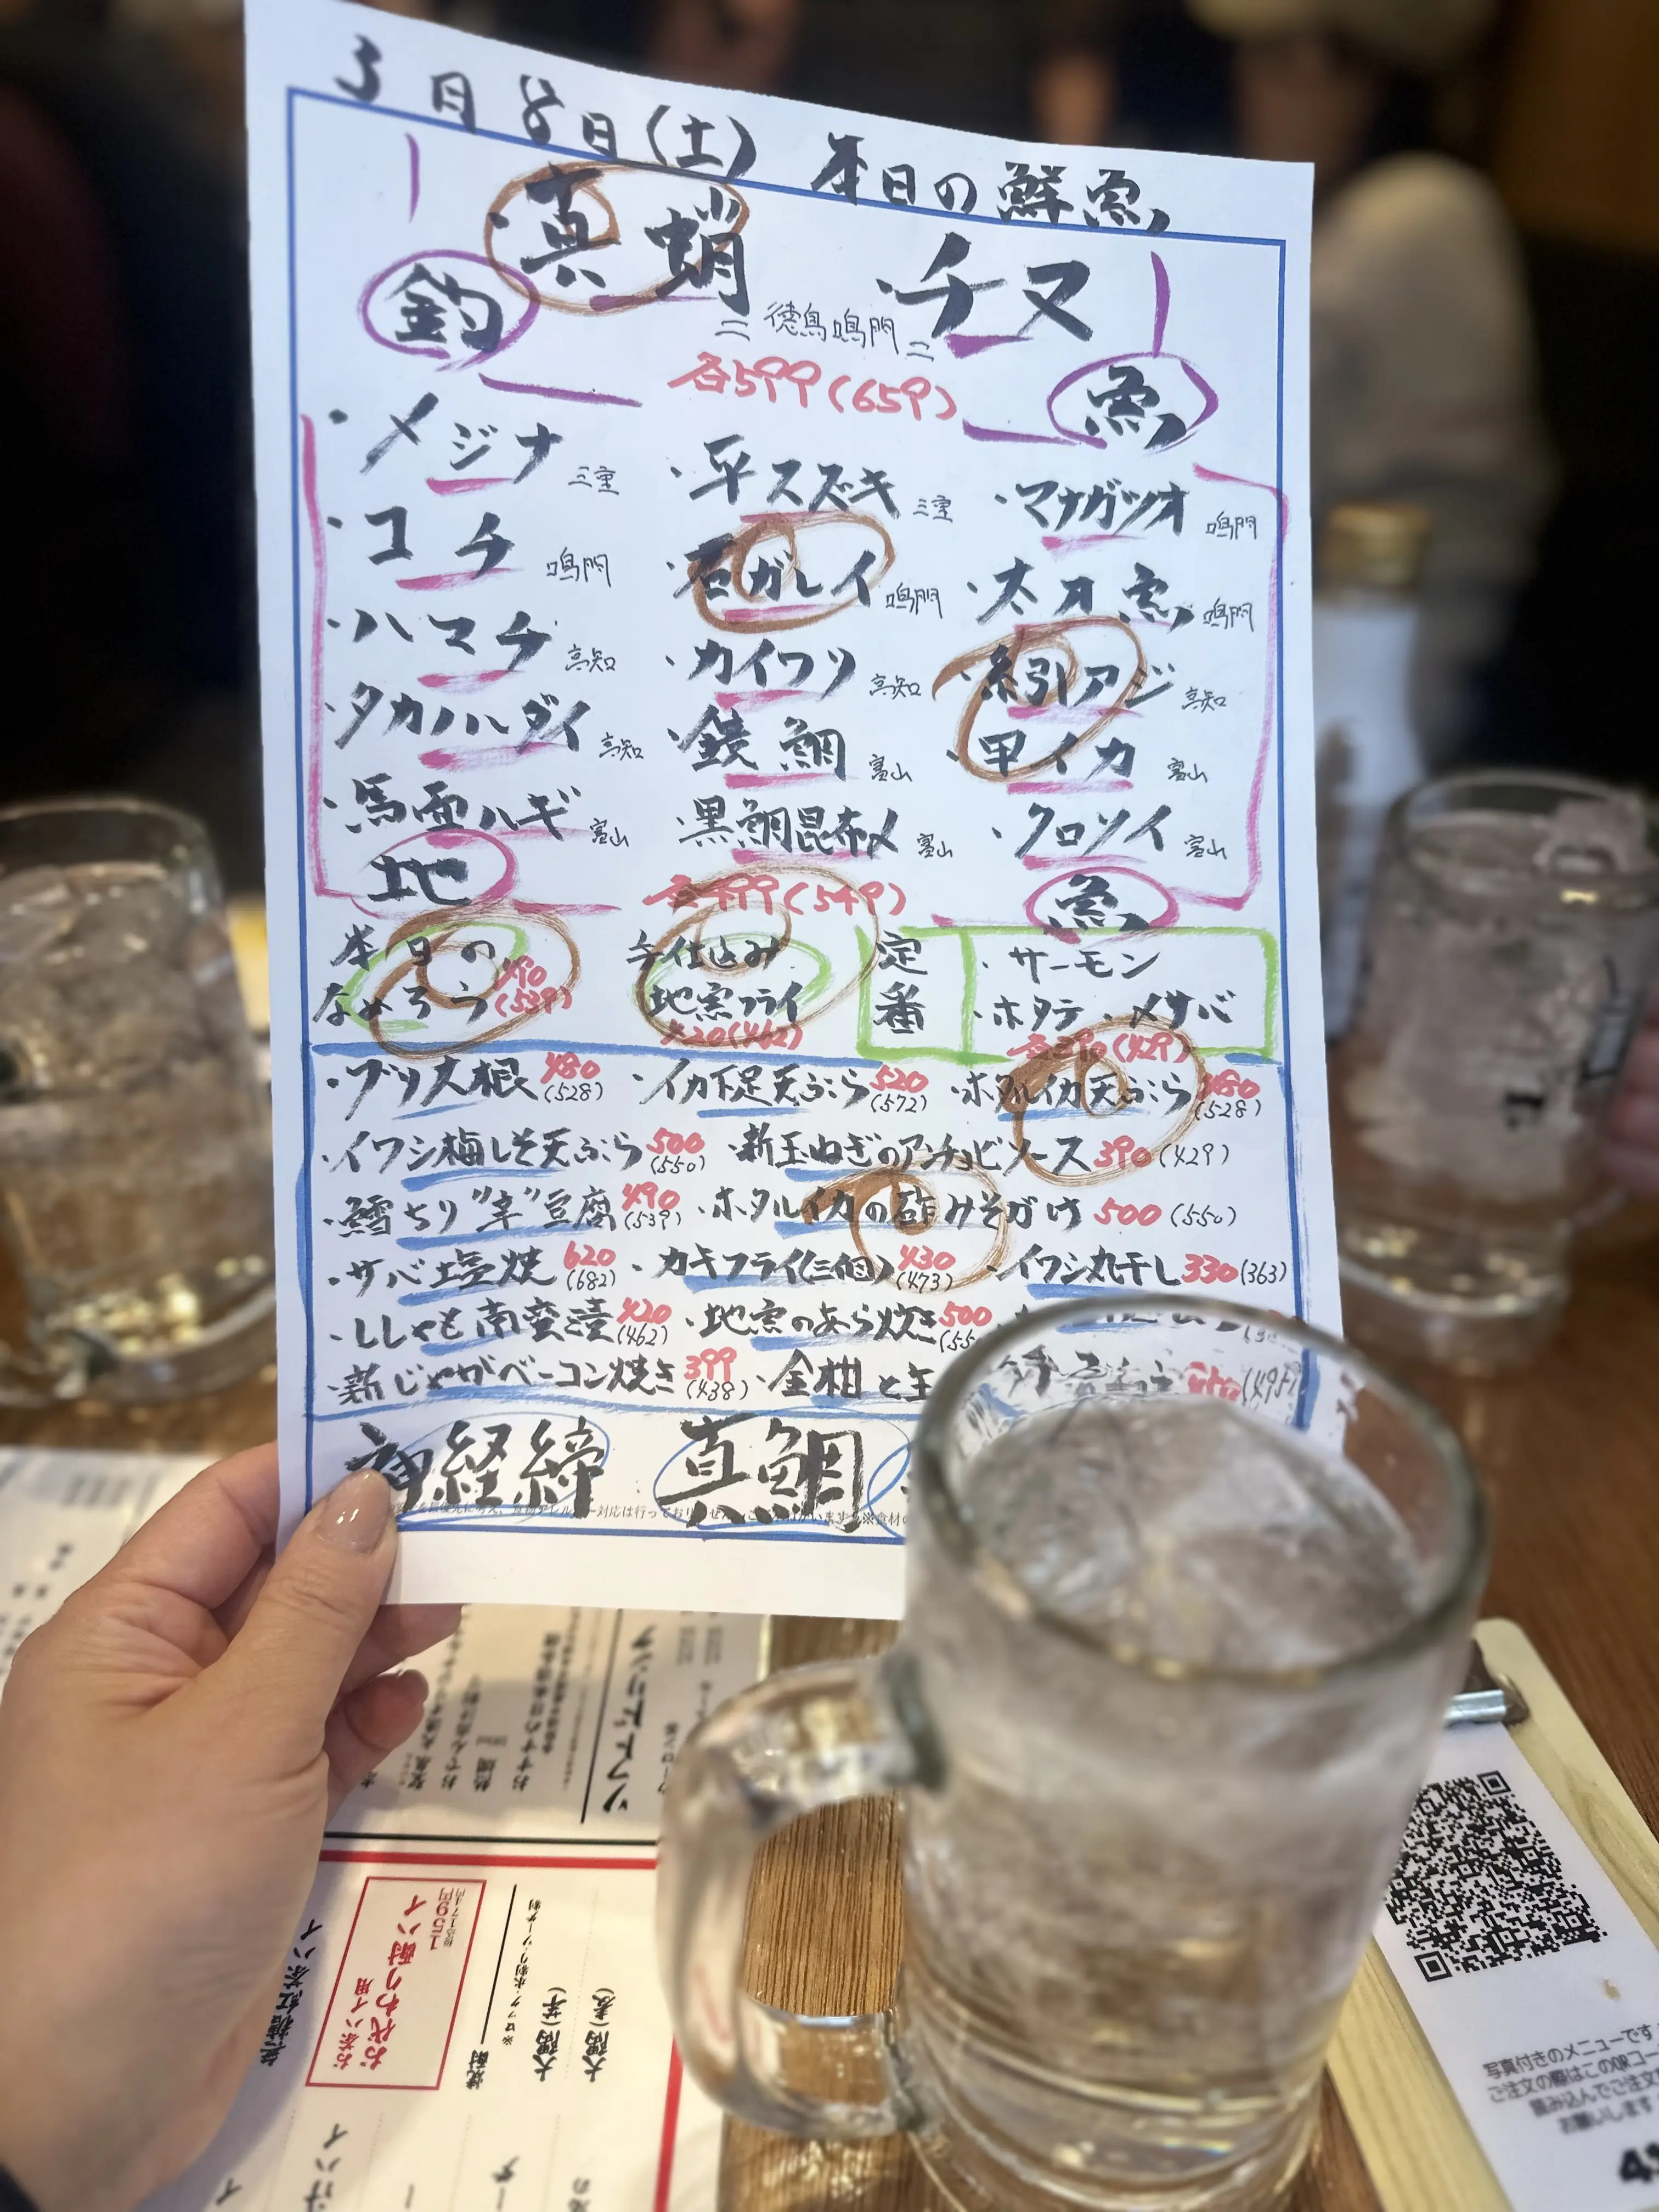 3月8日(土) 本日の鮮魚
・真蛸 ・チヌ
釣 魚
徳島鳴門
各599(659)
・メジナ 三重 ・平スズキ 三重 ・マナガツオ 鳴門
・コチ 鳴門 ・石ガレイ 鳴門 ・太刀魚 鳴門
・ハマチ 高知 ・カイワリ 高知 ・糸引アジ 高知
・タカノハダイ 高知 ・鏡鯛 富山 ・甲イカ 富山
・馬面ハギ 富山 ・黒鯛昆布〆 富山 ・クロソイ 富山
地 魚
各499(549)
本日のなめろう 490(539)
手仕込み地魚フライ 420(462)
定番 ・サーモン
・ホタテ ・〆サバ
各390(429)
・ブリ大根 480(528) ・イカ下足天ぷら 520(572) ・ホタルイカ天ぷら 480(528)
・イワシ梅しそ天ぷら 500(550) ・新玉ねぎのアンチョビソース 390(429)
・鱈ちり"辛"豆腐 490(539) ・ホタルイカの酢みそがけ 500(550)
・サバ塩焼 620(682) ・カキフライ(三個) 430(473) ・イワシ丸干し 330(363)
・ししゃも南蛮漬 420(462) ・地魚のあら炊き 500
・新じゃがベーコン焼き 399(438) ・金柑と生
神経締 真鯛
ソフトドリンク
無糖紅茶ハイ
お茶ハイ用
おかわり酎ハイ
159円
焼酎
※ロック・水割り・ソーダ割
大隅(芋)
大隅(麦)
写真付きのメニューです
ご注文の際はこのQRコー
読み込んでご注文
お願いします